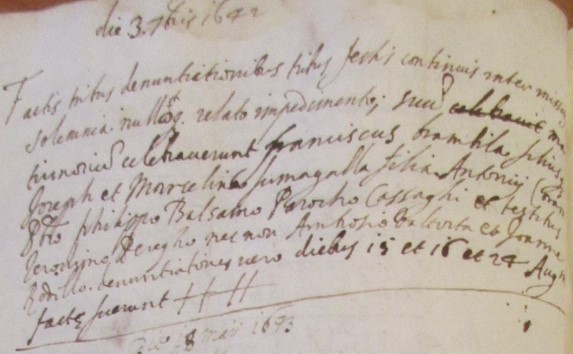 die 3. 7bris 1642
Factis tribus denuntiationibus tribus festis continuis inter missar
solemnia nulloq. relato impedimento; suū celebravit ma
trimoniū celebraverunt franciscus brambila filius
Joseph et Marcelina fumagalla filia Antonij
Pbro philippo Balsamo Parocho Cassaghi et testibus
Jeronimo nec non Ambrosio et Joanne
denuntiationes vero diebus 15 et 16 et 24 Aug
factę fuerunt
8 maij 1643